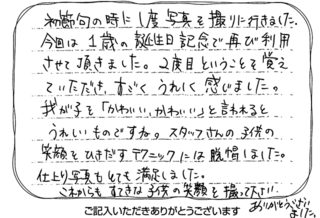 初節句の時に1度写真を撮りに行きました。
今回は1歳の誕生日記念で再び利用
させて頂きました。2度目ということを覚え
ていただき、すごくうれしく感じました。
我が子を「かわいい、かわいい」と言われると
うれしいものですね。スタッフさんの子供の
笑顔をひきだすテクニックには脱帽しました。
仕上り写真もとても満足しました。
これからもすてきな子供の笑顔を撮って下さい。
ありがとうござい
ました。
ご記入いただきありがとうございます